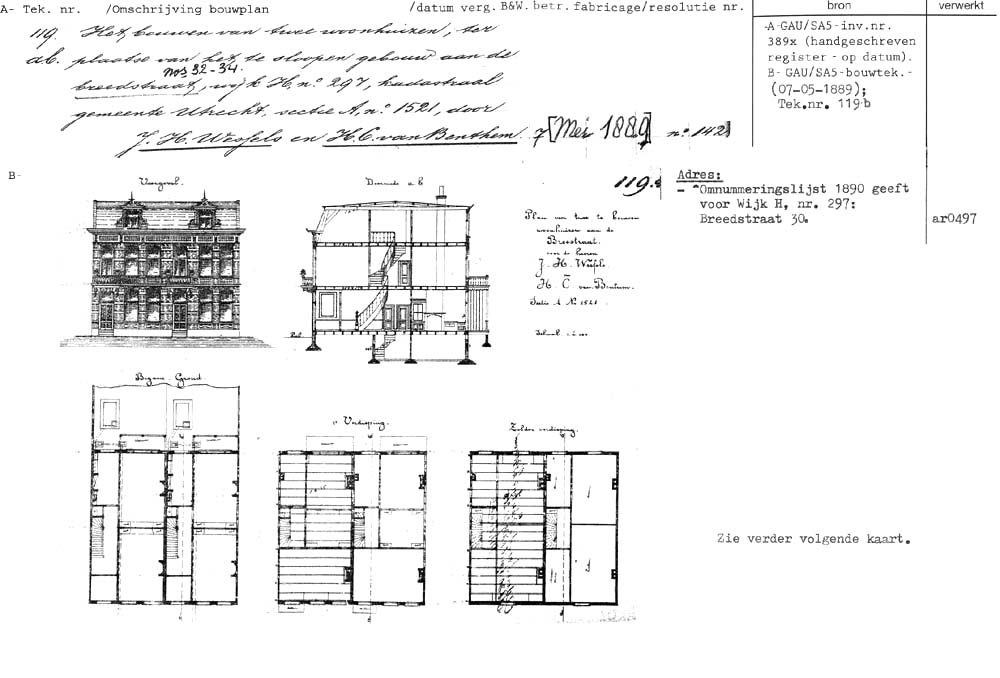 A- Tek. nr. /Omschrijving bouwplan /datum verg. B&W. betr. fabricage/resolutie nr. bron verwerkt
119. Het bouwen van twee woonhuizen, ter
ab. plaatse van het te sloopen gebouw aan de
nos 32-34.
breedstraat, wijk H, no. 297, kadastraal
gemeente Utrecht, sectie A, no. 1521, door
J. H. Wessels en H. C. van Benthem. 7 [Mei 1889] no. 142
-A-GAU/SA5-inv.nr.
389x (handgeschreven
register - op datum).
B- GAU/SA5-bouwtek.-
(07-05-1889);
Tek.nr. 119b
B-
Voorgevel.
Doorsnede a b
119.
Plan van twee te bouwen
woonhuizen aan de
Breestraat.
voor de heeren
J. H. Wessels.
H. C. van Bentum.
Sectie A No 1521
Schaal
Adres:
- "Omnummeringslijst 1890 geeft
voor Wijk H, nr. 297:
Breedstraat 30.
ar0497
Begane Grond
1e Verdieping.
Zolder verdieping.
Zie verder volgende kaart.